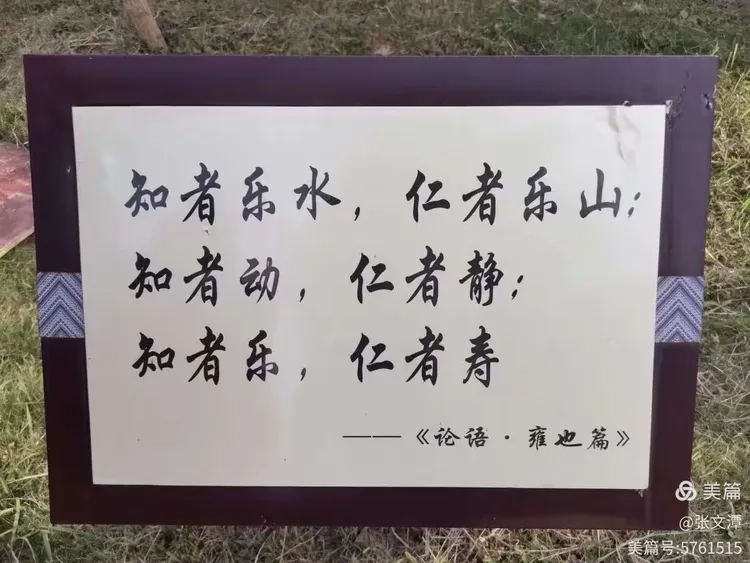 知者乐水，仁者乐山；
知者动，仁者静；
知者乐，仁者寿
——《论语·雍也篇》
美篇
@张文潭
美篇号:5761515